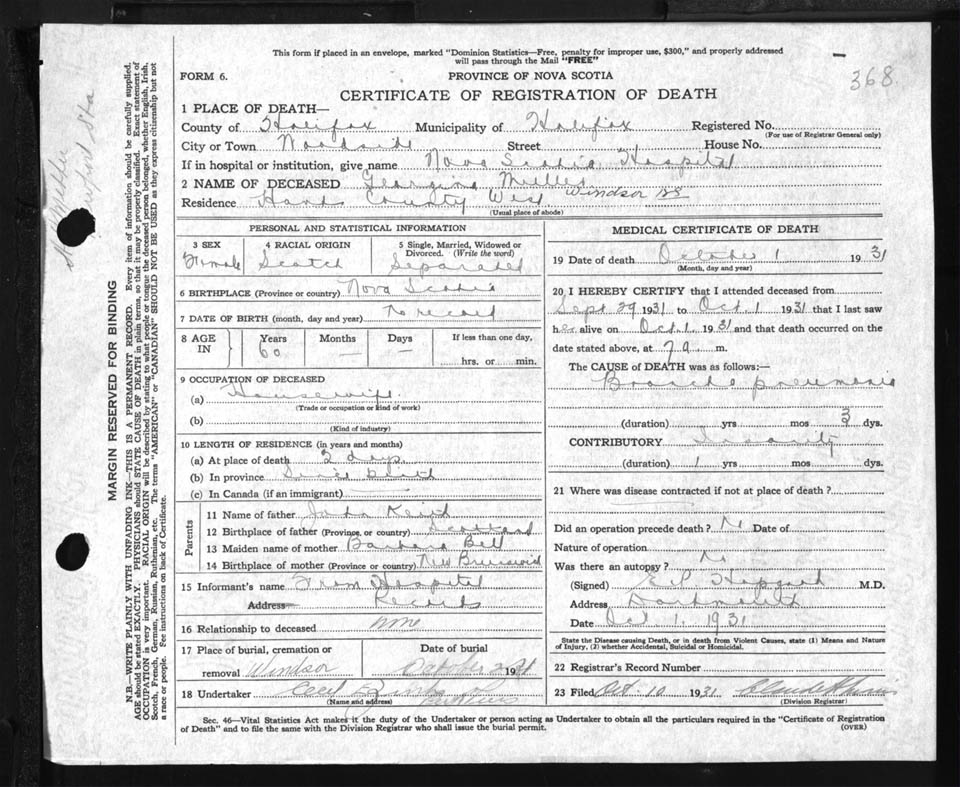 This form if placed in an envelope, marked "Dominion Statistics—Free, penalty for improper use, $300," and properly addressed
will pass through the Mail "FREE"
368
FORM 6. PROVINCE OF NOVA SCOTIA
CERTIFICATE OF REGISTRATION OF DEATH
1 PLACE OF DEATH—
County of Halifax Municipality of Halifax Registered No.
(For use of Registrar General only)
City or Town Woodside Street House No.
If in hospital or institution, give name Nova Scotia Hospital
2 NAME OF DECEASED Georgina Miller
Residence Hants County West Windsor NS
(Usual place of abode)
PERSONAL AND STATISTICAL INFORMATION
3 SEX 4 RACIAL ORIGIN 5 Single, Married, Widowed or
Divorced. (Write the word)
Female Scotch Separated
6 BIRTHPLACE (Province or country) Nova Scotia
7 DATE OF BIRTH (month, day and year) No record
8 AGE IN Years Months Days If less than one day,
60 — — hrs. or min.
9 OCCUPATION OF DECEASED
(a) Housewife
(Trade or occupation or kind of work)
(b)
(Kind of industry)
10 LENGTH OF RESIDENCE (in years and months)
(a) At place of death 2 days
(b) In province Since birth
(c) In Canada (if an immigrant)
Parents
11 Name of father John
12 Birthplace of father (Province or country) Scotland
13 Maiden name of mother Barbara Bell
14 Birthplace of mother (Province or country) New Brunswick
15 Informant's name From Hospital
Address Records
16 Relationship to deceased none
17 Place of burial, cremation or Date of burial
removal Windsor October 1931
18 Undertaker Cecil
(Name and address)
MEDICAL CERTIFICATE OF DEATH
19 Date of death October 1 1931
(Month, day and year)
20 I HEREBY CERTIFY that I attended deceased from
Sept 29 1931 to Oct 1 1931 that I last saw
her alive on Oct 1 1931 and that death occurred on
date stated above, at 7 a m.
The CAUSE of DEATH was as follows:—
Broncho pneumonia
(duration) yrs mos 3 dys.
CONTRIBUTORY Insanity
(duration) 1 yrs mos dys.
21 Where was disease contracted if not at place of death?
Did an operation precede death? No Date of
Nature of operation
Was there an autopsy? No
(Signed) M.D.
Address Dartmouth
Date Oct 1. 1931
State the Disease causing Death, or in death from Violent Causes, state (1) Means and Nature
of Injury, (2) whether Accidental, Suicidal or Homicidal.
22 Registrar's Record Number
23 Filed Oct 10 1931
(Division Registrar)
Sec. 46—Vital Statistics Act makes it the duty of the Undertaker or person acting as Undertaker to obtain all the particulars required in the "Certificate of Registration
of Death" and to file the same with the Division Registrar who shall issue the burial permit. (OVER)
MARGIN RESERVED FOR BINDING
N.B.—WRITE PLAINLY WITH UNFADING INK—THIS IS A PERMANENT RECORD. Every item of information should be carefully supplied.
AGE should be stated EXACTLY. PHYSICIANS should STATE CAUSE OF DEATH in plain terms, so that it may be properly classified. Exact statement of
OCCUPATION is very important. RACIAL ORIGIN will be described by stating to what people or tongue the deceased person belonged, whether English, Irish,
Scotch, French, German, Russian, Ruthenian, etc. The terms "AMERICAN" or "CANADIAN" SHOULD NOT BE USED as they express citizenship but not
a race or people. See instructions on back of Certificate.